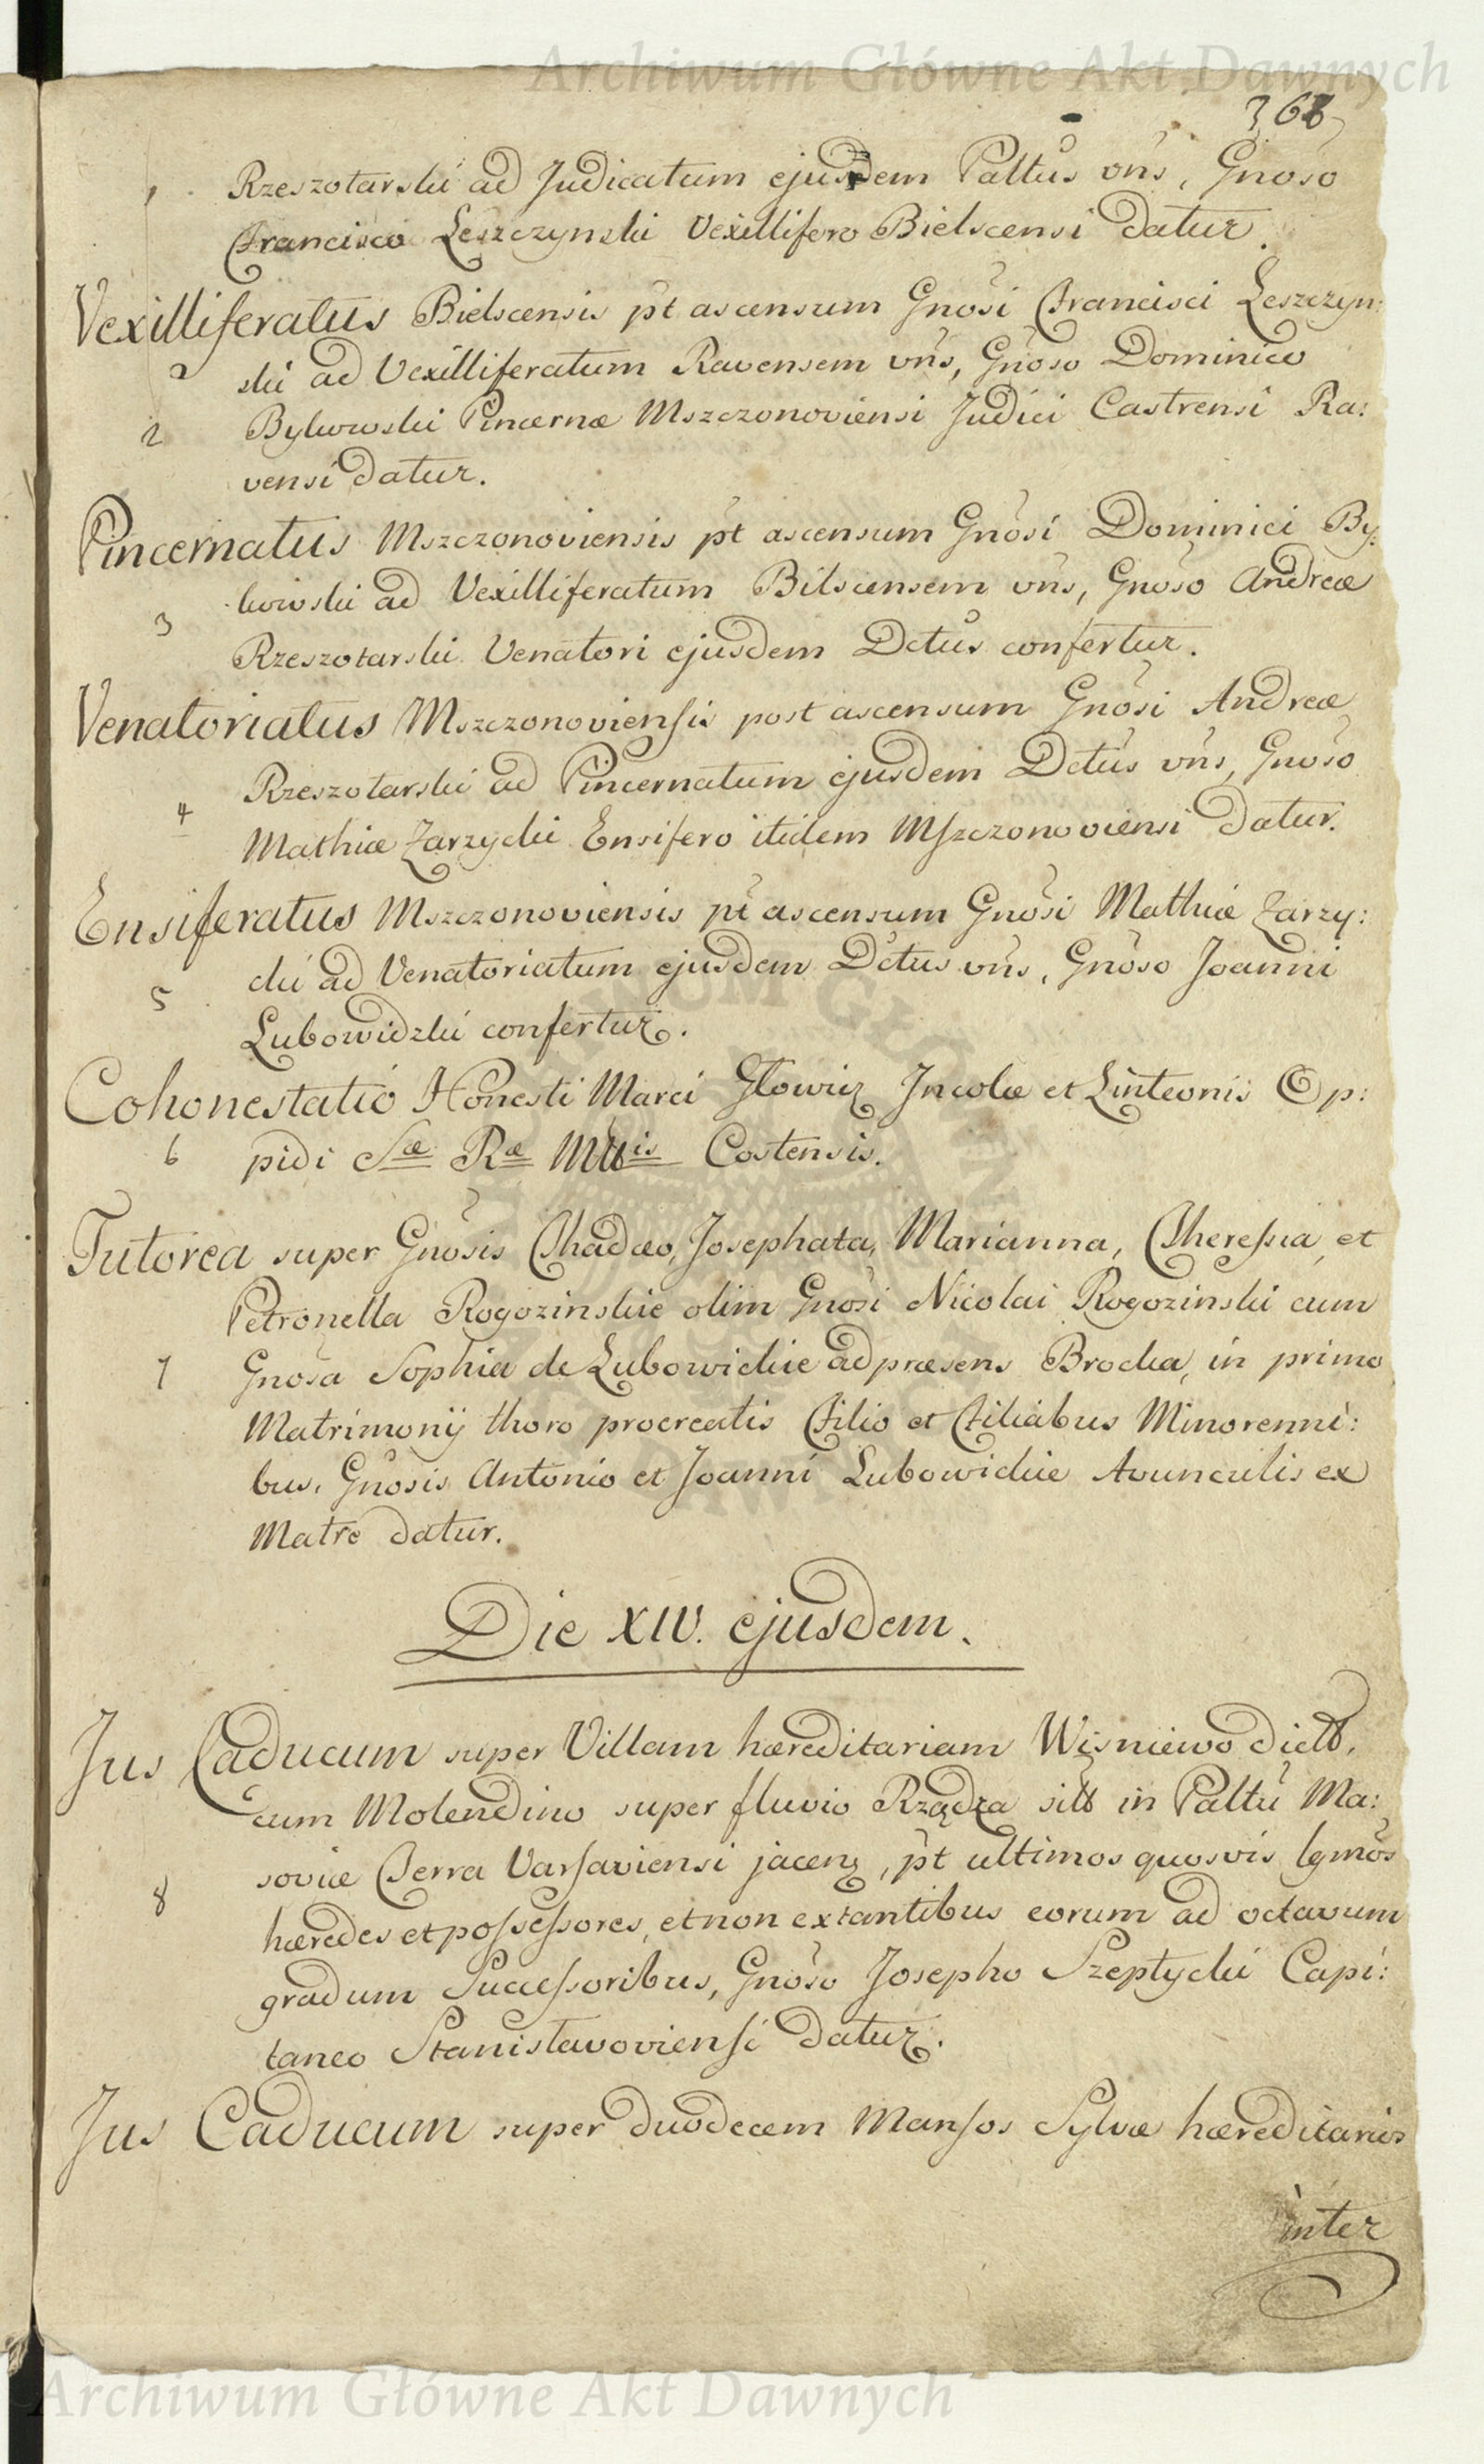 Archiwum Główne Akt Dawnych
367
1 Rzeszotarski ad Judicatum ejusdem Paltus vns, Gnoso
Francisco Leszczynski Vexillifero Bielscensi datur.
Vexilliferatus Bielscensis pt ascensum Gnosi Francisci Leszczyn:
2 ski ad Vexilliferatum Ravensem vns, Gnoso Dominico
2 Bykowski Pincernæ Mszczonoviensi Judici Castrensi Ra:
vensi datur.
Pincernatus Mszczonoviensis pt ascensum Gnosi Dominici By:
kowski ad Vexilliferatum Bilscensem vns, Gnoso Andreæ
3 Rzeszotarski Venatori ejusdem Dctus confertur.
Venatoriatus Mszczonoviensis post ascensum Gnosi Andreæ
Rzeszotarski ad Pincernatum ejusdem Dctus vns, Gnoso
4 Mathiæ Zarzycki Ensifero itidem Mszczonoviensi datur.
Ensiferatus Mszczonoviensis pt ascensum Gnosi Mathiæ Zarzy:
5 cki ad Venatoriatum ejusdem Dctus vns, Gnoso Joanni
Lubowidzki confertur.
Cohonestatio Honesti Marci Głowicz Incolæ et Linteonis Op:
6 pidi Sæ Ræ Mttis Costensis.
Tutorea super Gnosis Thadæo, Josephata, Marianna, Theressia, et
Petronella Rogozinskie olim Gnosi Nicolai Rogozinski cum
7 Gnosa Sophia de Lubowickie ad præsens Brocka, in primo
Matrimonij thoro procreatis Filio et Filiabus Minorenni:
bus, Gnosis Antonio et Joanni Lubowickie Avunculis ex
Matre datur.
Die XIV. ejusdem.
Jus Caducum super Villam hæreditariam Wisniewo dictt,
cum Molendino super fluvio Rządza sitt in Paltu Ma:
soviæ Terra Varsaviensi jacen, pt ultimos quosvis lgmos
8 hæredes et possessores, et non extantibus eorum ad octavum
gradum Successoribus, Gnoso Josepho Szeptycki Capi:
taneo Stanisławoviensi datur.
Jus Caducum super duodecem Mansos Sylvæ hæreditarios
inter
Archiwum Główne Akt Dawnych